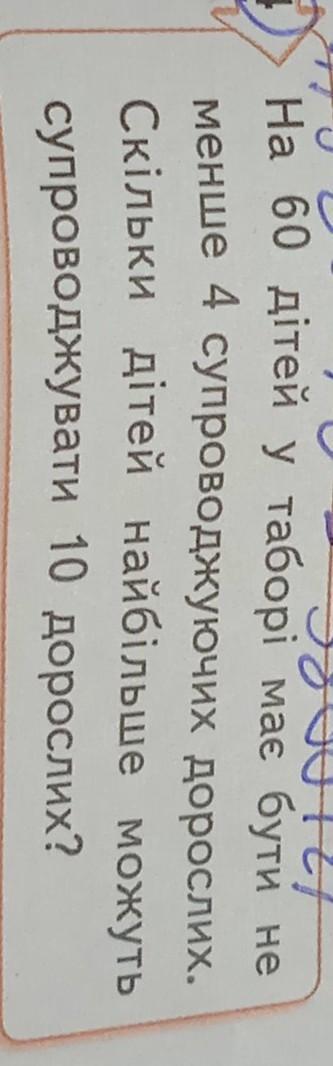 На 60 дітей у таборі має бути не
менше 4 супроводжуючих дорослих.
Скільки дітей найбільше можуть
супроводжувати 10 дорослих?